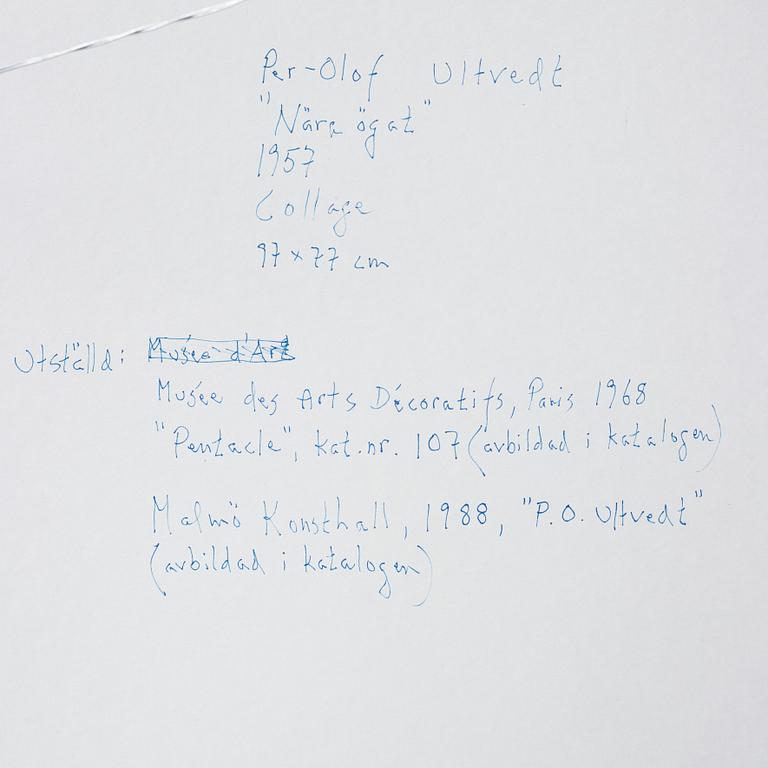 Per-Olof Ultvedt
"Nära ögat"
1957
Collage
97 x 77 cm
Utställd: Musée d'Art
Musée des Arts Décoratifs, Paris 1968
"Pentacle", kat.nr. 107 (avbildad i katalogen)
Malmö Konsthall, 1988, "P.O. Ultvedt"
(avbildad i katalogen)